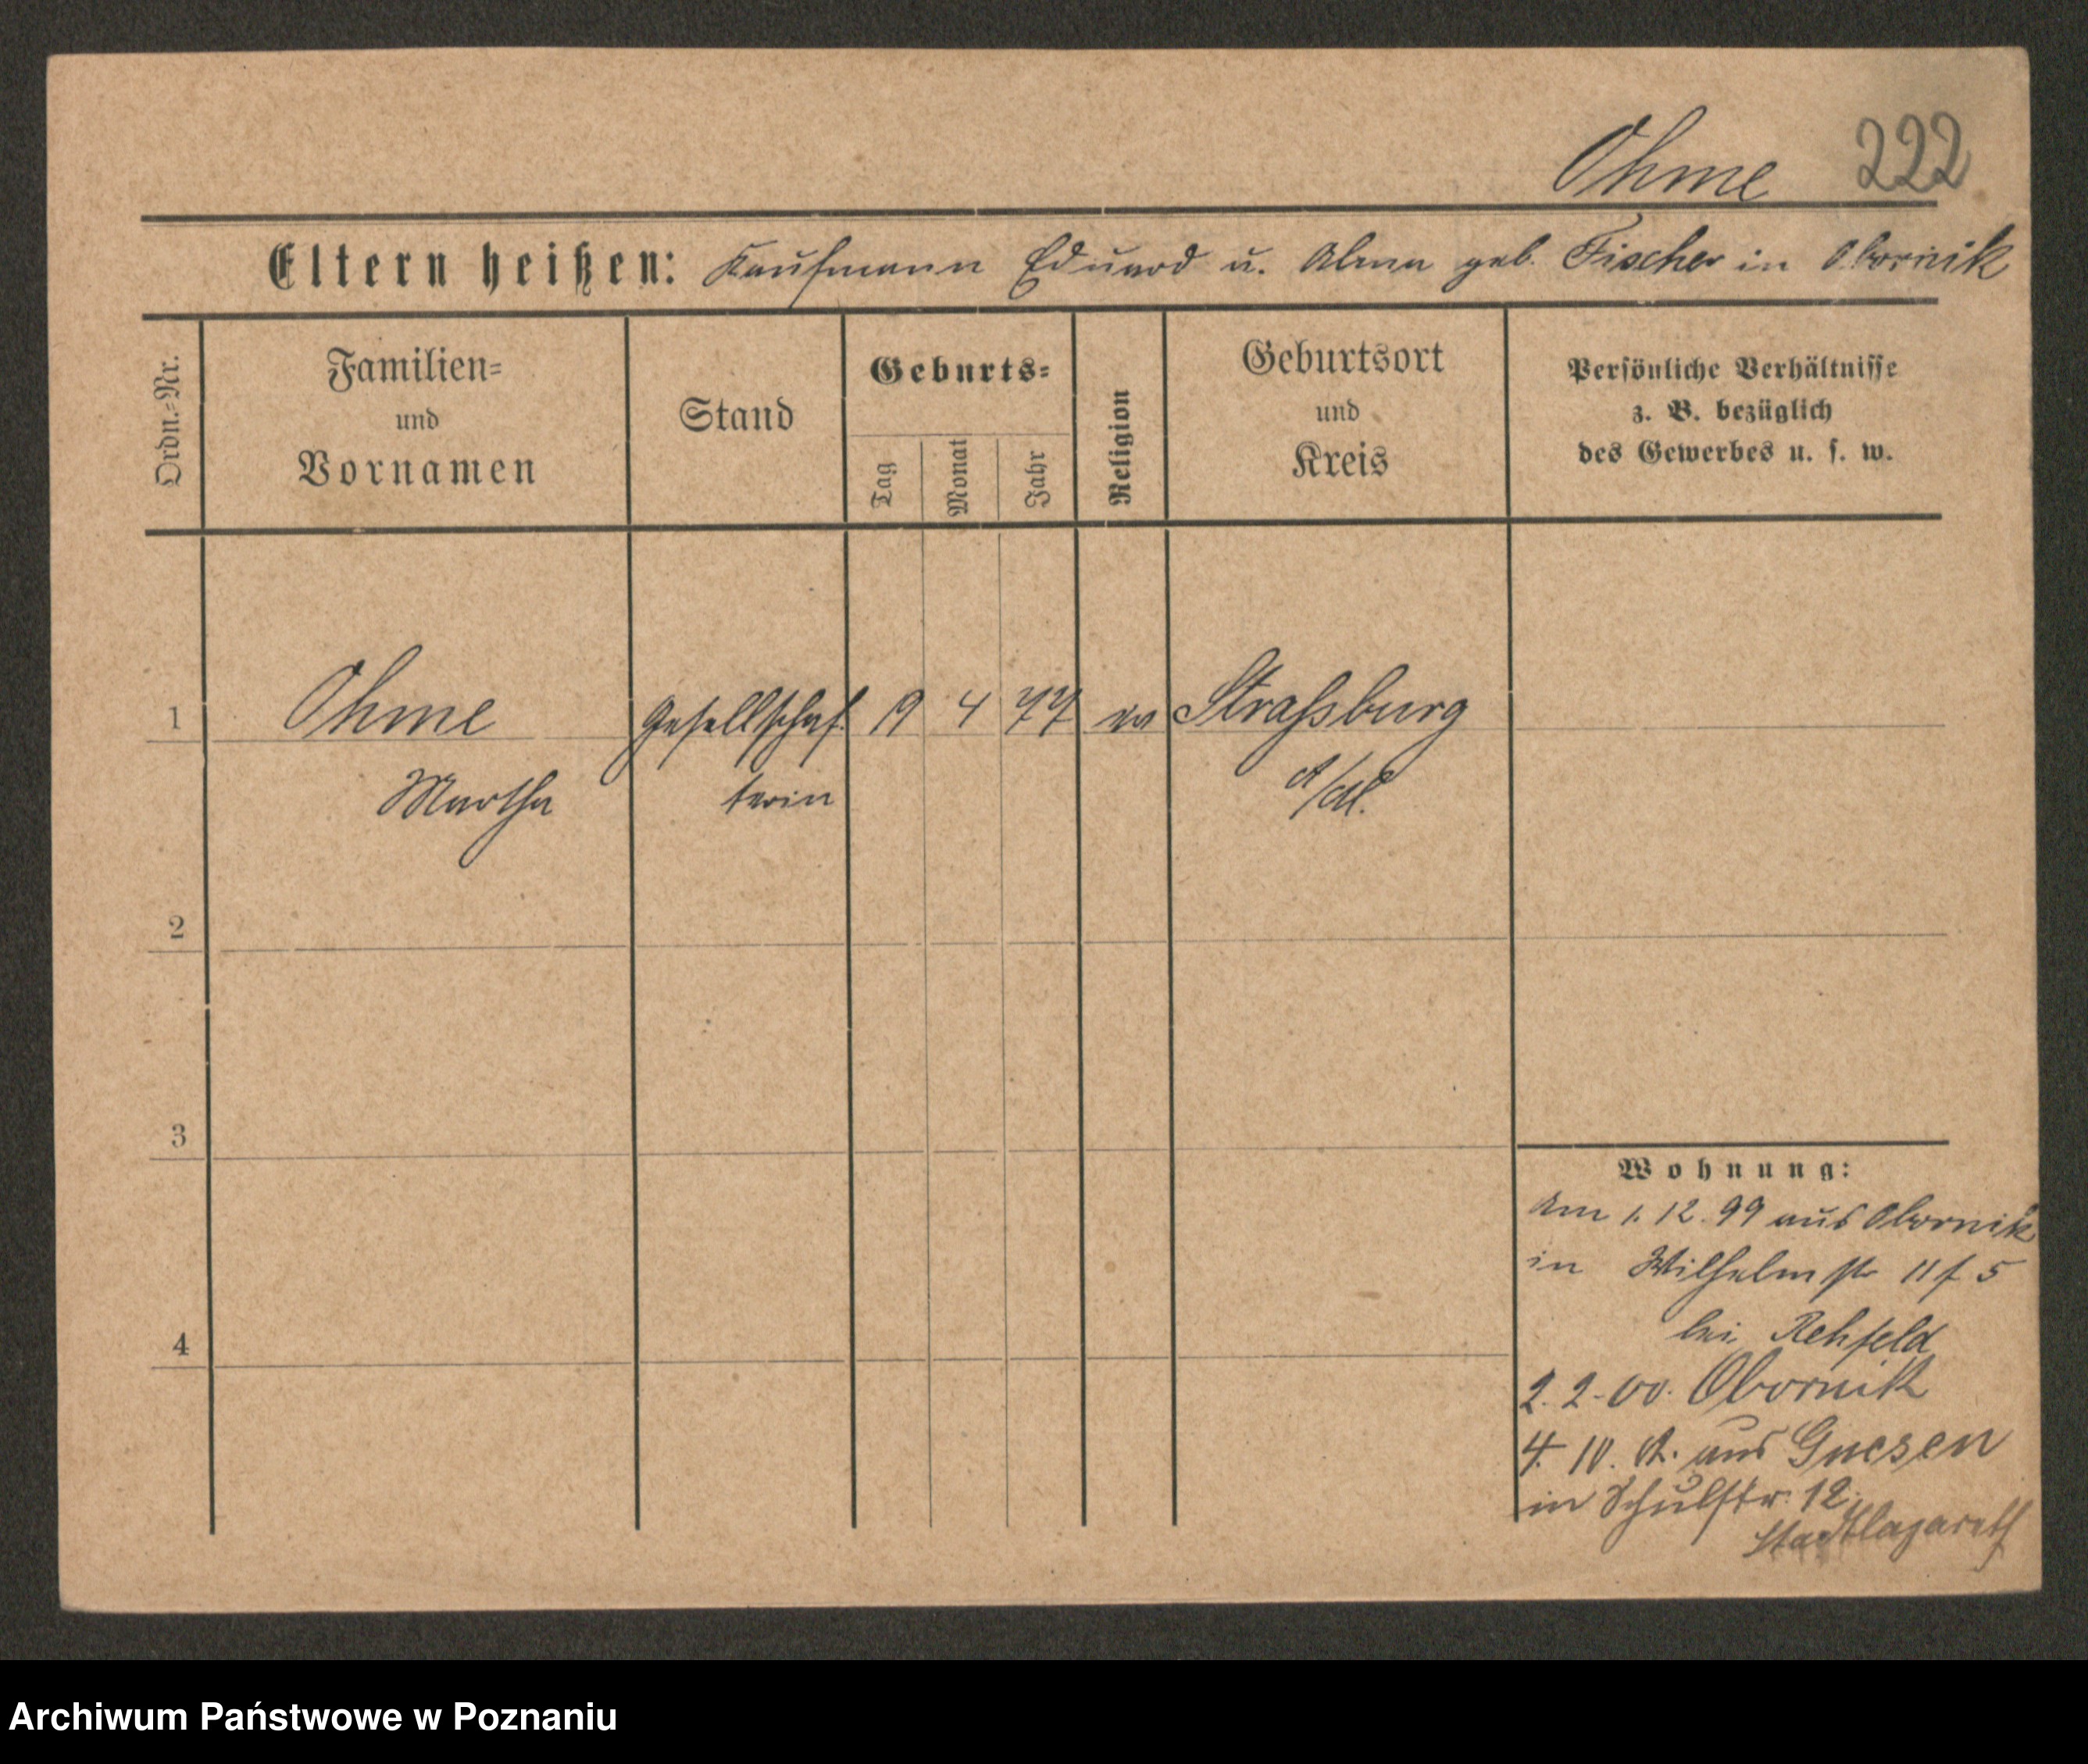 Ohme 222
Eltern heißen: Kaufmann Eduard u. Alma geb. Fischer in Obornik
Ordn.=Nr.
Familien=
und
Vornamen
Stand
Geburts=
Tag
Monat
Jahr
Religion
Geburtsort
und
Kreis
Persönliche Verhältnisse
z. B. bezüglich
des Gewerbes u. s. w.
1 Ohme Gesellschaf= 19 4 77 ev Strassburg
Martha terin
2
3
4
Wohnung:
Am 1. 12. 99 aus Obornik
in Wilhelmstr 11 f 5
bei Rehfeld
2. 2. 00. Obornik
4. 10. aus Gnesen
in Schulstr. 12.
Stadtlazareth
Archiwum Państwowe w Poznaniu